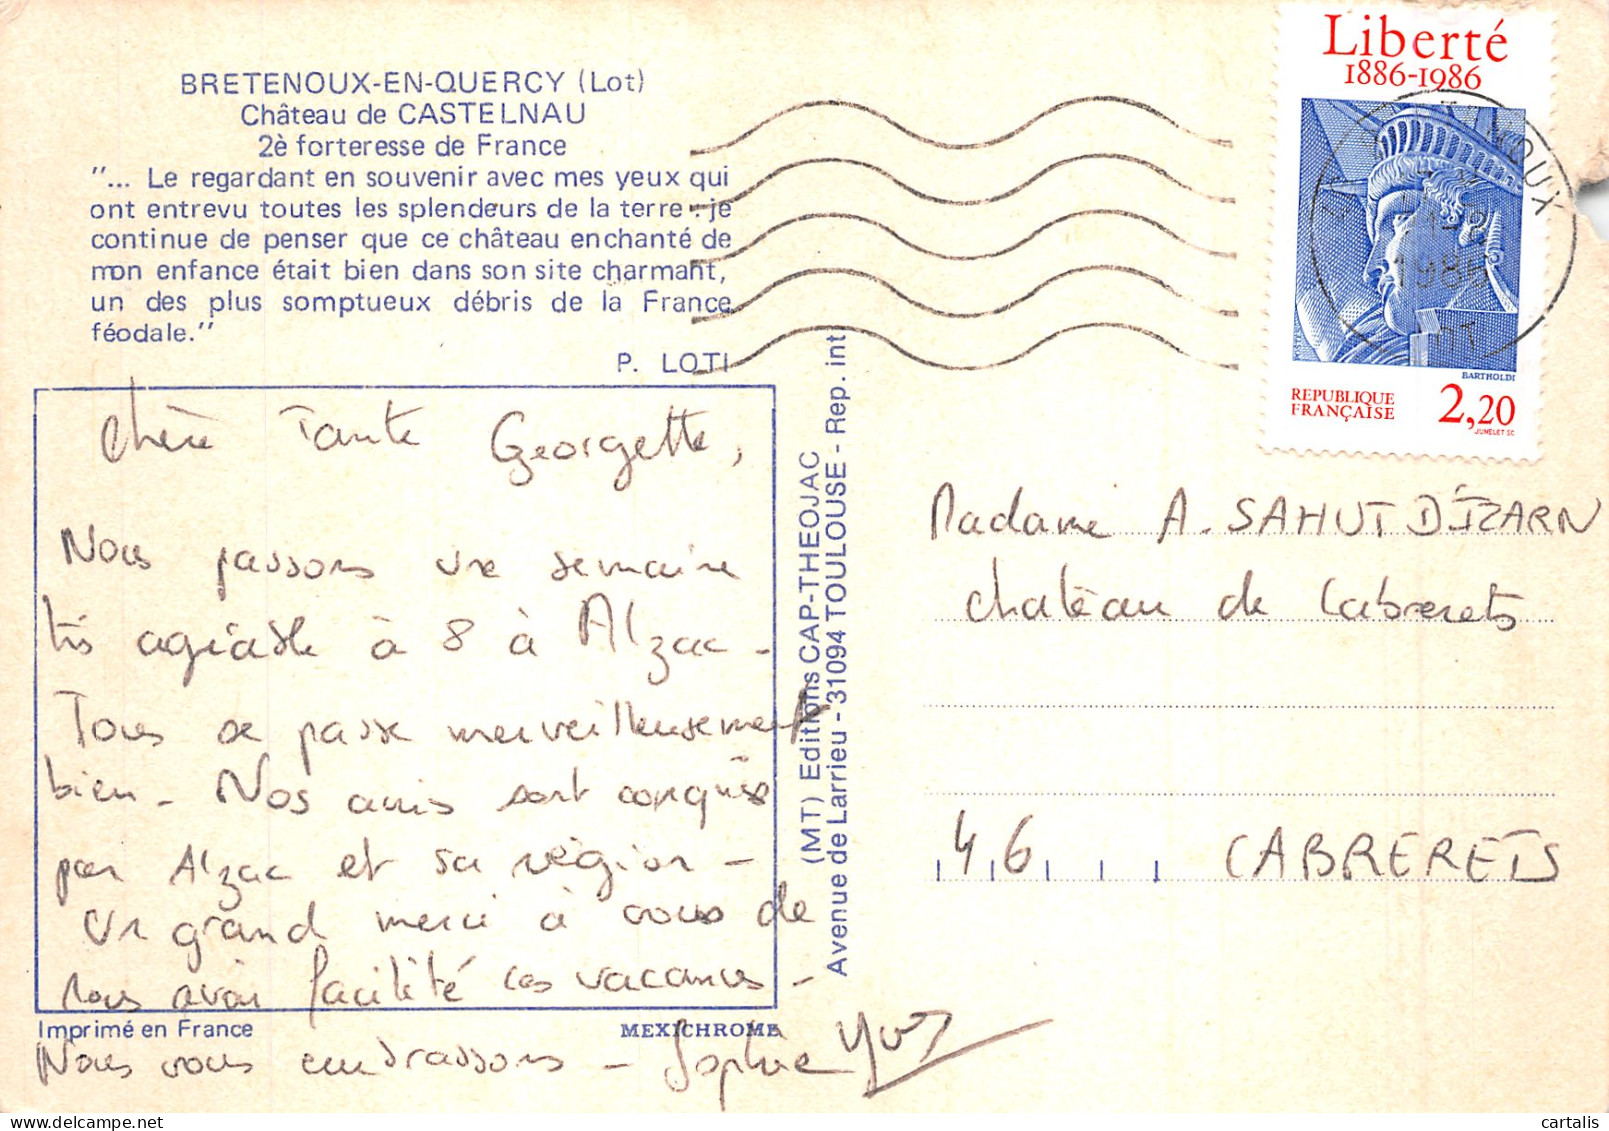 BRETENOUX-EN-QUERCY (Lot)
Château de CASTELNAU
2è forteresse de France
"... Le regardant en souvenir avec mes yeux qui
ont entrevu toutes les splendeurs de la terre : je
continue de penser que ce château enchanté de
mon enfance était bien dans son site charmant,
un des plus somptueux débris de la France
féodale."
P. LOTI
Chère Tante Georgette,
Nous passons une semaine
très agréable à 8 à Alzac -
Tous se passe merveilleusement
bien - Nos amis sont conquis
par Alzac et sa région -
Un grand merci à vous de
nous avoir facilité ces vacances -
Nous vous embrassons - Sophie Yves
Imprimé en France
MEXICHROME
(MT) Editions CAP-THEOJAC
Avenue de Larrieu - 31094 TOULOUSE - Rep. int
Liberté
1886-1986
BARTHOLDI
REPUBLIQUE
FRANÇAISE
2,20
JUMELET SC
1986
LOT
Madame A. SAHUT D'IZARN
château de Cabrerets
46 CABRERETS
cartalis